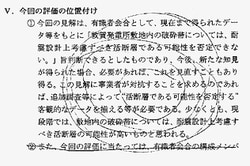 Ⅴ．今回の評価の位置付け
①今回の見解は、有識者会合として、現在まで得られたデー
タ等をもとに「敦賀発電所敷地内の破砕帯については、耐
震設計上考慮すべき活断層である可能性を否定できな
い。」旨判断できるとしたものであり、今後、新たな知見
が得られた場合、必要があれば、これを見直すこともあり
得る。この見解に事業者が対抗することを求めるのであれ
ば、追加調査等によって、「活断層である可能性を否定する」
客観的なデータを揃える等が必要である。少なくとも、現
段階では、敷地内の破砕帯については、耐震設計上考慮す
べき活断層の可能性が高いものと思われる。
②また、今回の評価に当たっては、有識者会合の構成メンバ